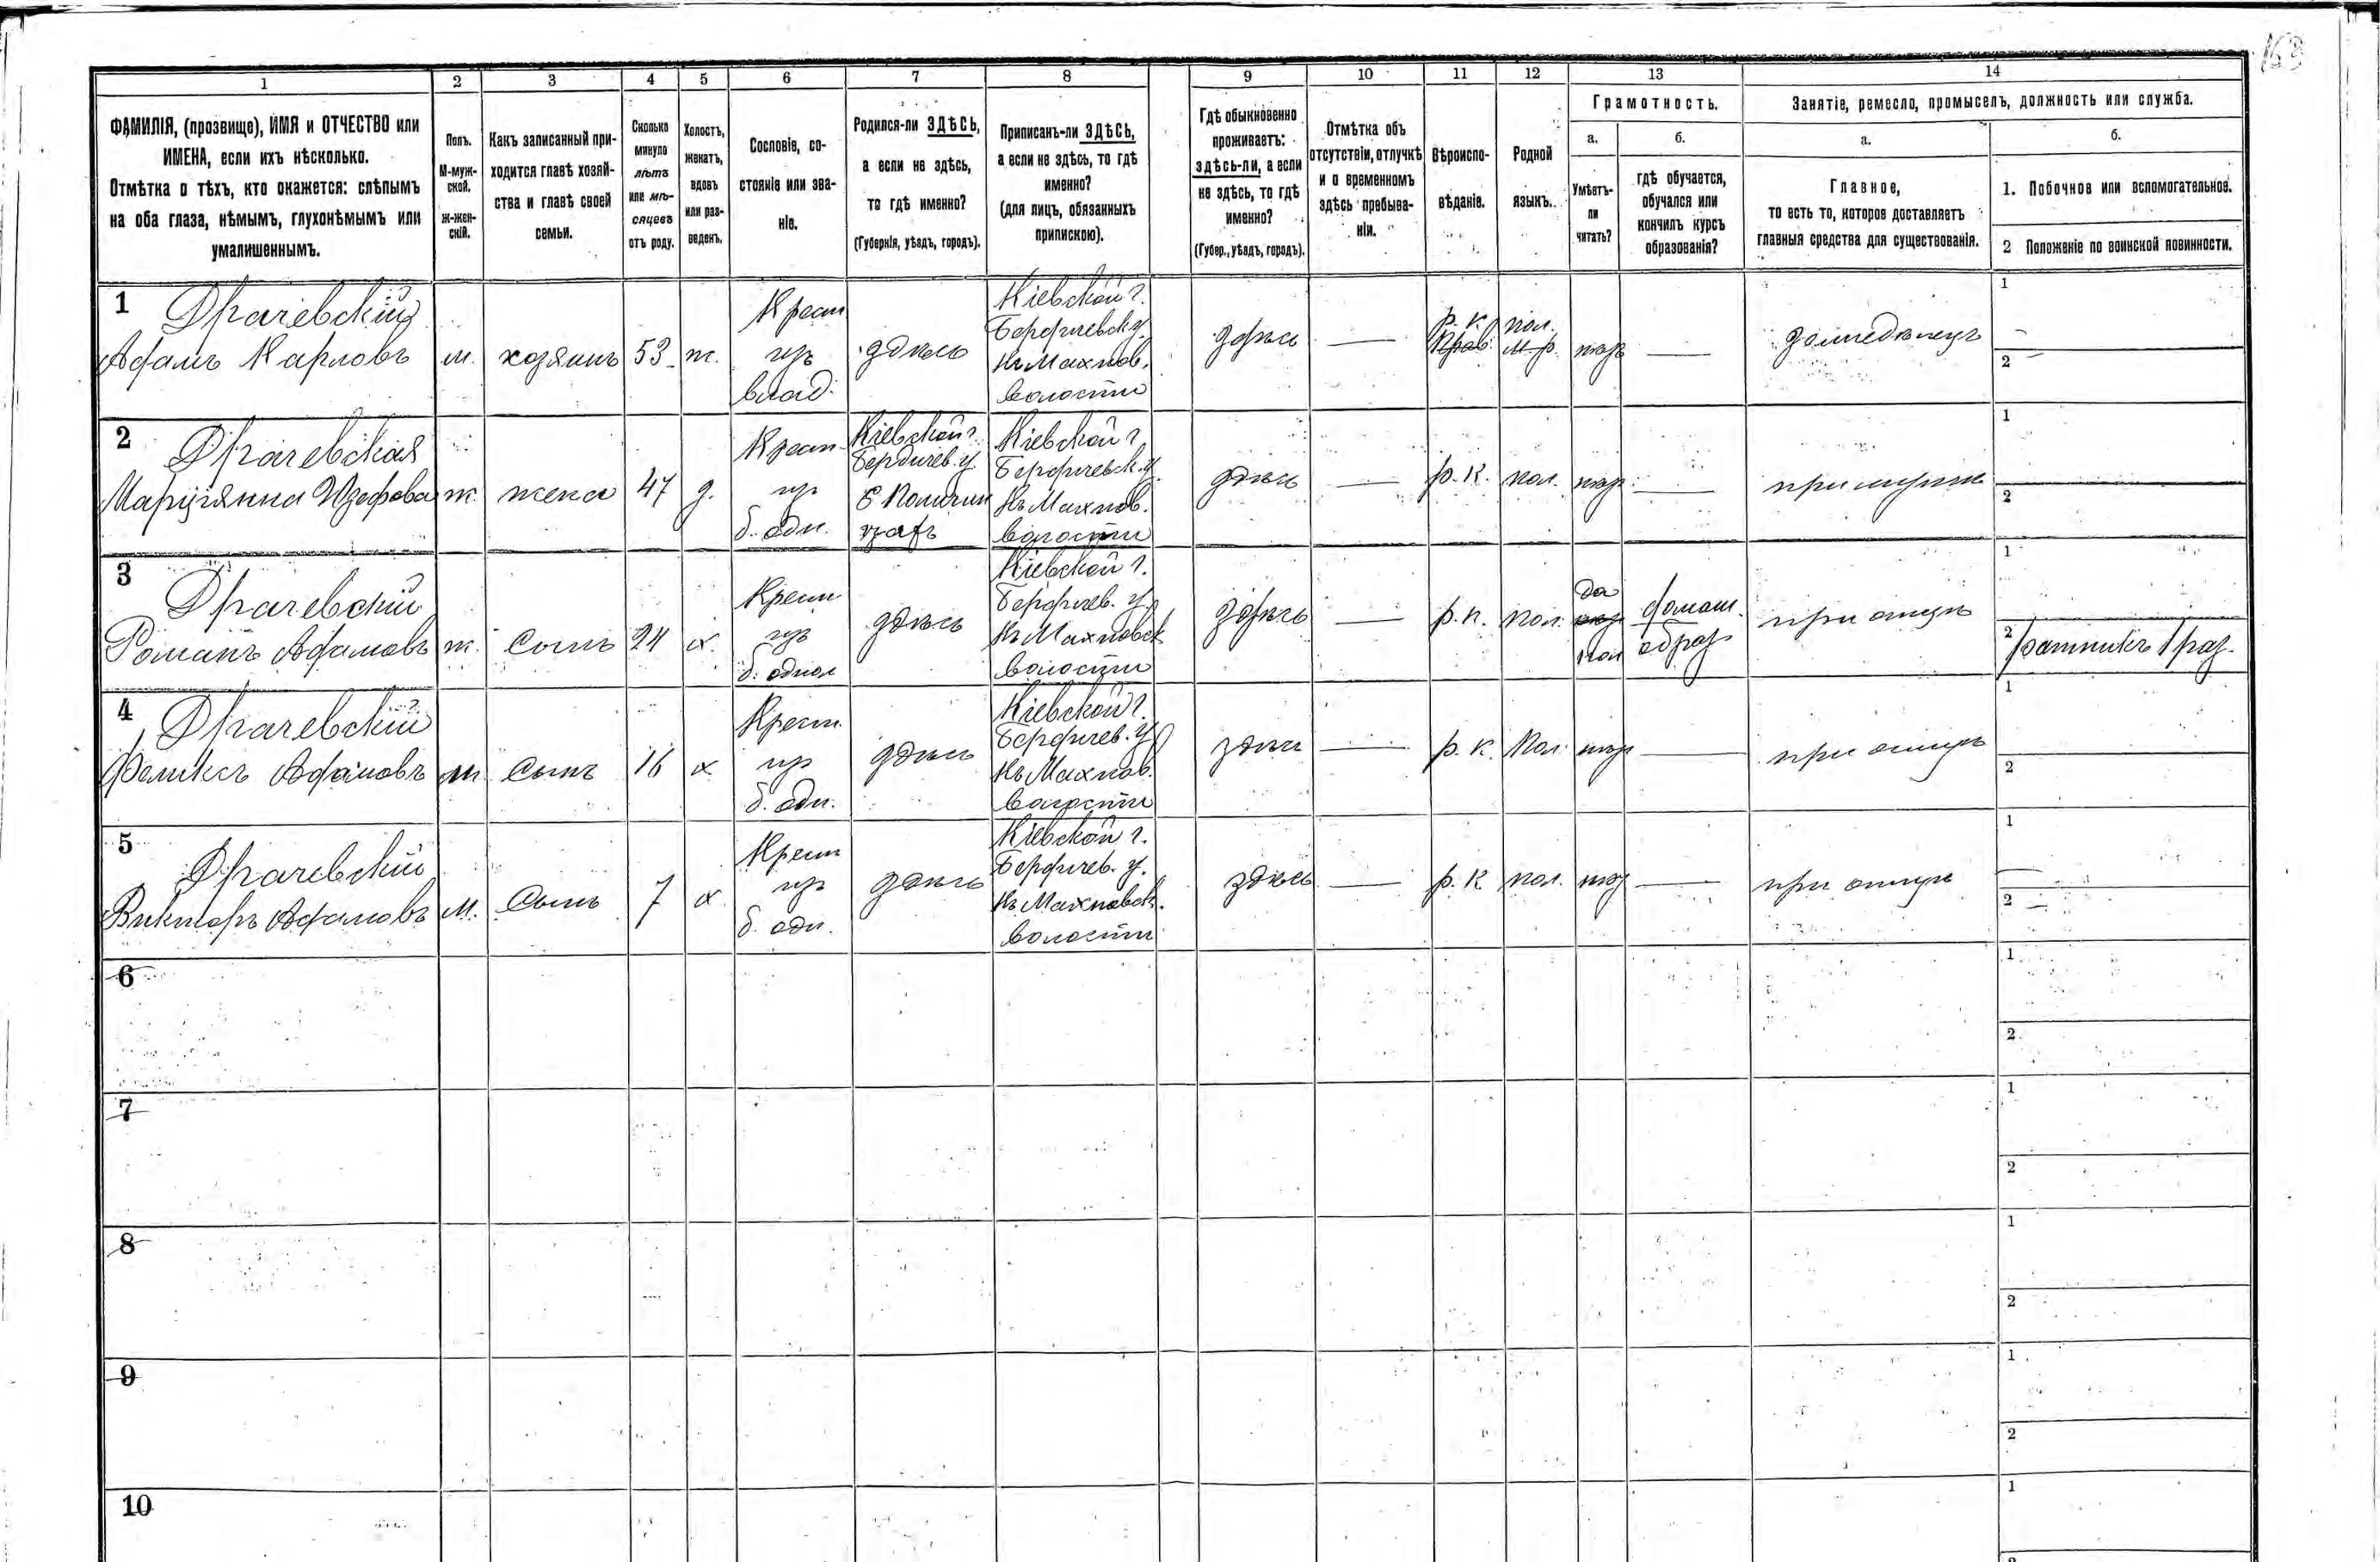 163
1 2 3 4 5 6 7 8 9 10 11 12 13 14
ФАМИЛІЯ, (прозвище), ИМЯ и ОТЧЕСТВО или
ИМЕНА, если ихъ нѣсколько.
Отмѣтка о тѣхъ, кто окажется: слѣпымъ
на оба глаза, нѣмымъ, глухонѣмымъ или
умалишеннымъ.
Полъ.
М-муж-
ской.
ж-жен-
скій.
Какъ записанный при-
ходится главѣ хозяй-
ства и главѣ своей
семьи.
Сколько
минуло
лѣтъ
или мѣ-
сяцевъ
отъ роду.
Холостъ,
женатъ,
вдовъ
или раз-
веденъ.
Сословіе, со-
стояніе или зва-
ніе.
Родился-ли ЗДѢСЬ,
а если не здѣсь,
то гдѣ именно?
(Губернія, уѣздъ, городъ).
Приписанъ-ли ЗДѢСЬ,
а если не здѣсь, то гдѣ
именно?
(для лицъ, обязанныхъ
припискою).
Гдѣ обыкновенно
проживаетъ:
здѣсь-ли, а если
не здѣсь, то гдѣ
именно?
(Губер., уѣздъ, городъ).
Отмѣтка объ
отсутствіи, отлучкѣ
и о временномъ
здѣсь пребыва-
ніи.
Вѣроиспо-
вѣданіе.
Родной
языкъ.
Грамотность.
а.
Умѣетъ-
ли
читать?
б.
гдѣ обучается,
обучался или
кончилъ курсъ
образованія?
Занятіе, ремесло, промыселъ, должность или служба.
а.
Главное,
то есть то, которое доставляетъ
главныя средства для существованія.
б.
1. Побочное или вспомогательное.
2 Положеніе по воинской повинности.
1 Драчевскій
Адамъ Карловъ
м.
хозяинъ
53
ж.
Крест
изъ
влад.
здѣсь
Кіевской г.
Бердичевск у.
Къ Махнов.
волости
здѣсь
—
р. к.
Прав.
пол.
м. р.
нѣтъ
—
земледѣлецъ
1
2
2 Драчевская
Марціянна Юзефова
ж
жена
47
з.
Крест
изъ
б. одн.
Кіевской г.
Бердичев. у.
Кіевской г.
Бердичевск. у
Къ Махнов.
волости
здѣсь
—
р. к.
пол.
нѣтъ
—
при мужѣ
1
2
3 Драчевскій
Романъ Адамовъ
ж.
Сынъ
24
х.
Крест
изъ
б. однод
здѣсь
Кіевской г.
Бердичев. у
Къ Махновск
волости
здѣсь
—
р. к.
пол.
да
нѣтъ
пол
домаш.
образ
при отцѣ
1
2 Ратникъ 1 раз.
4 Драчевскій
Феликсъ Адамовъ
м
Сынъ
16
х
Крест.
изъ
б. одн.
здѣсь
Кіевской г.
Бердичев. у
Къ Махнов.
волости
здѣсь
—
р. к.
Пол.
нѣтъ
—
при отцѣ
1
2
5 Драчевскій
Викторъ Адамовъ
м.
Сынъ
7
х
Крест
изъ
б. одн.
здѣсь
Кіевской г.
Бердичев. у.
Къ Махновск.
волости
здѣсь
—
р. к
пол.
нѣтъ
—
при отцѣ
1
2
6
1
2
7
1
2
8
1
2
9
1
2
10
1